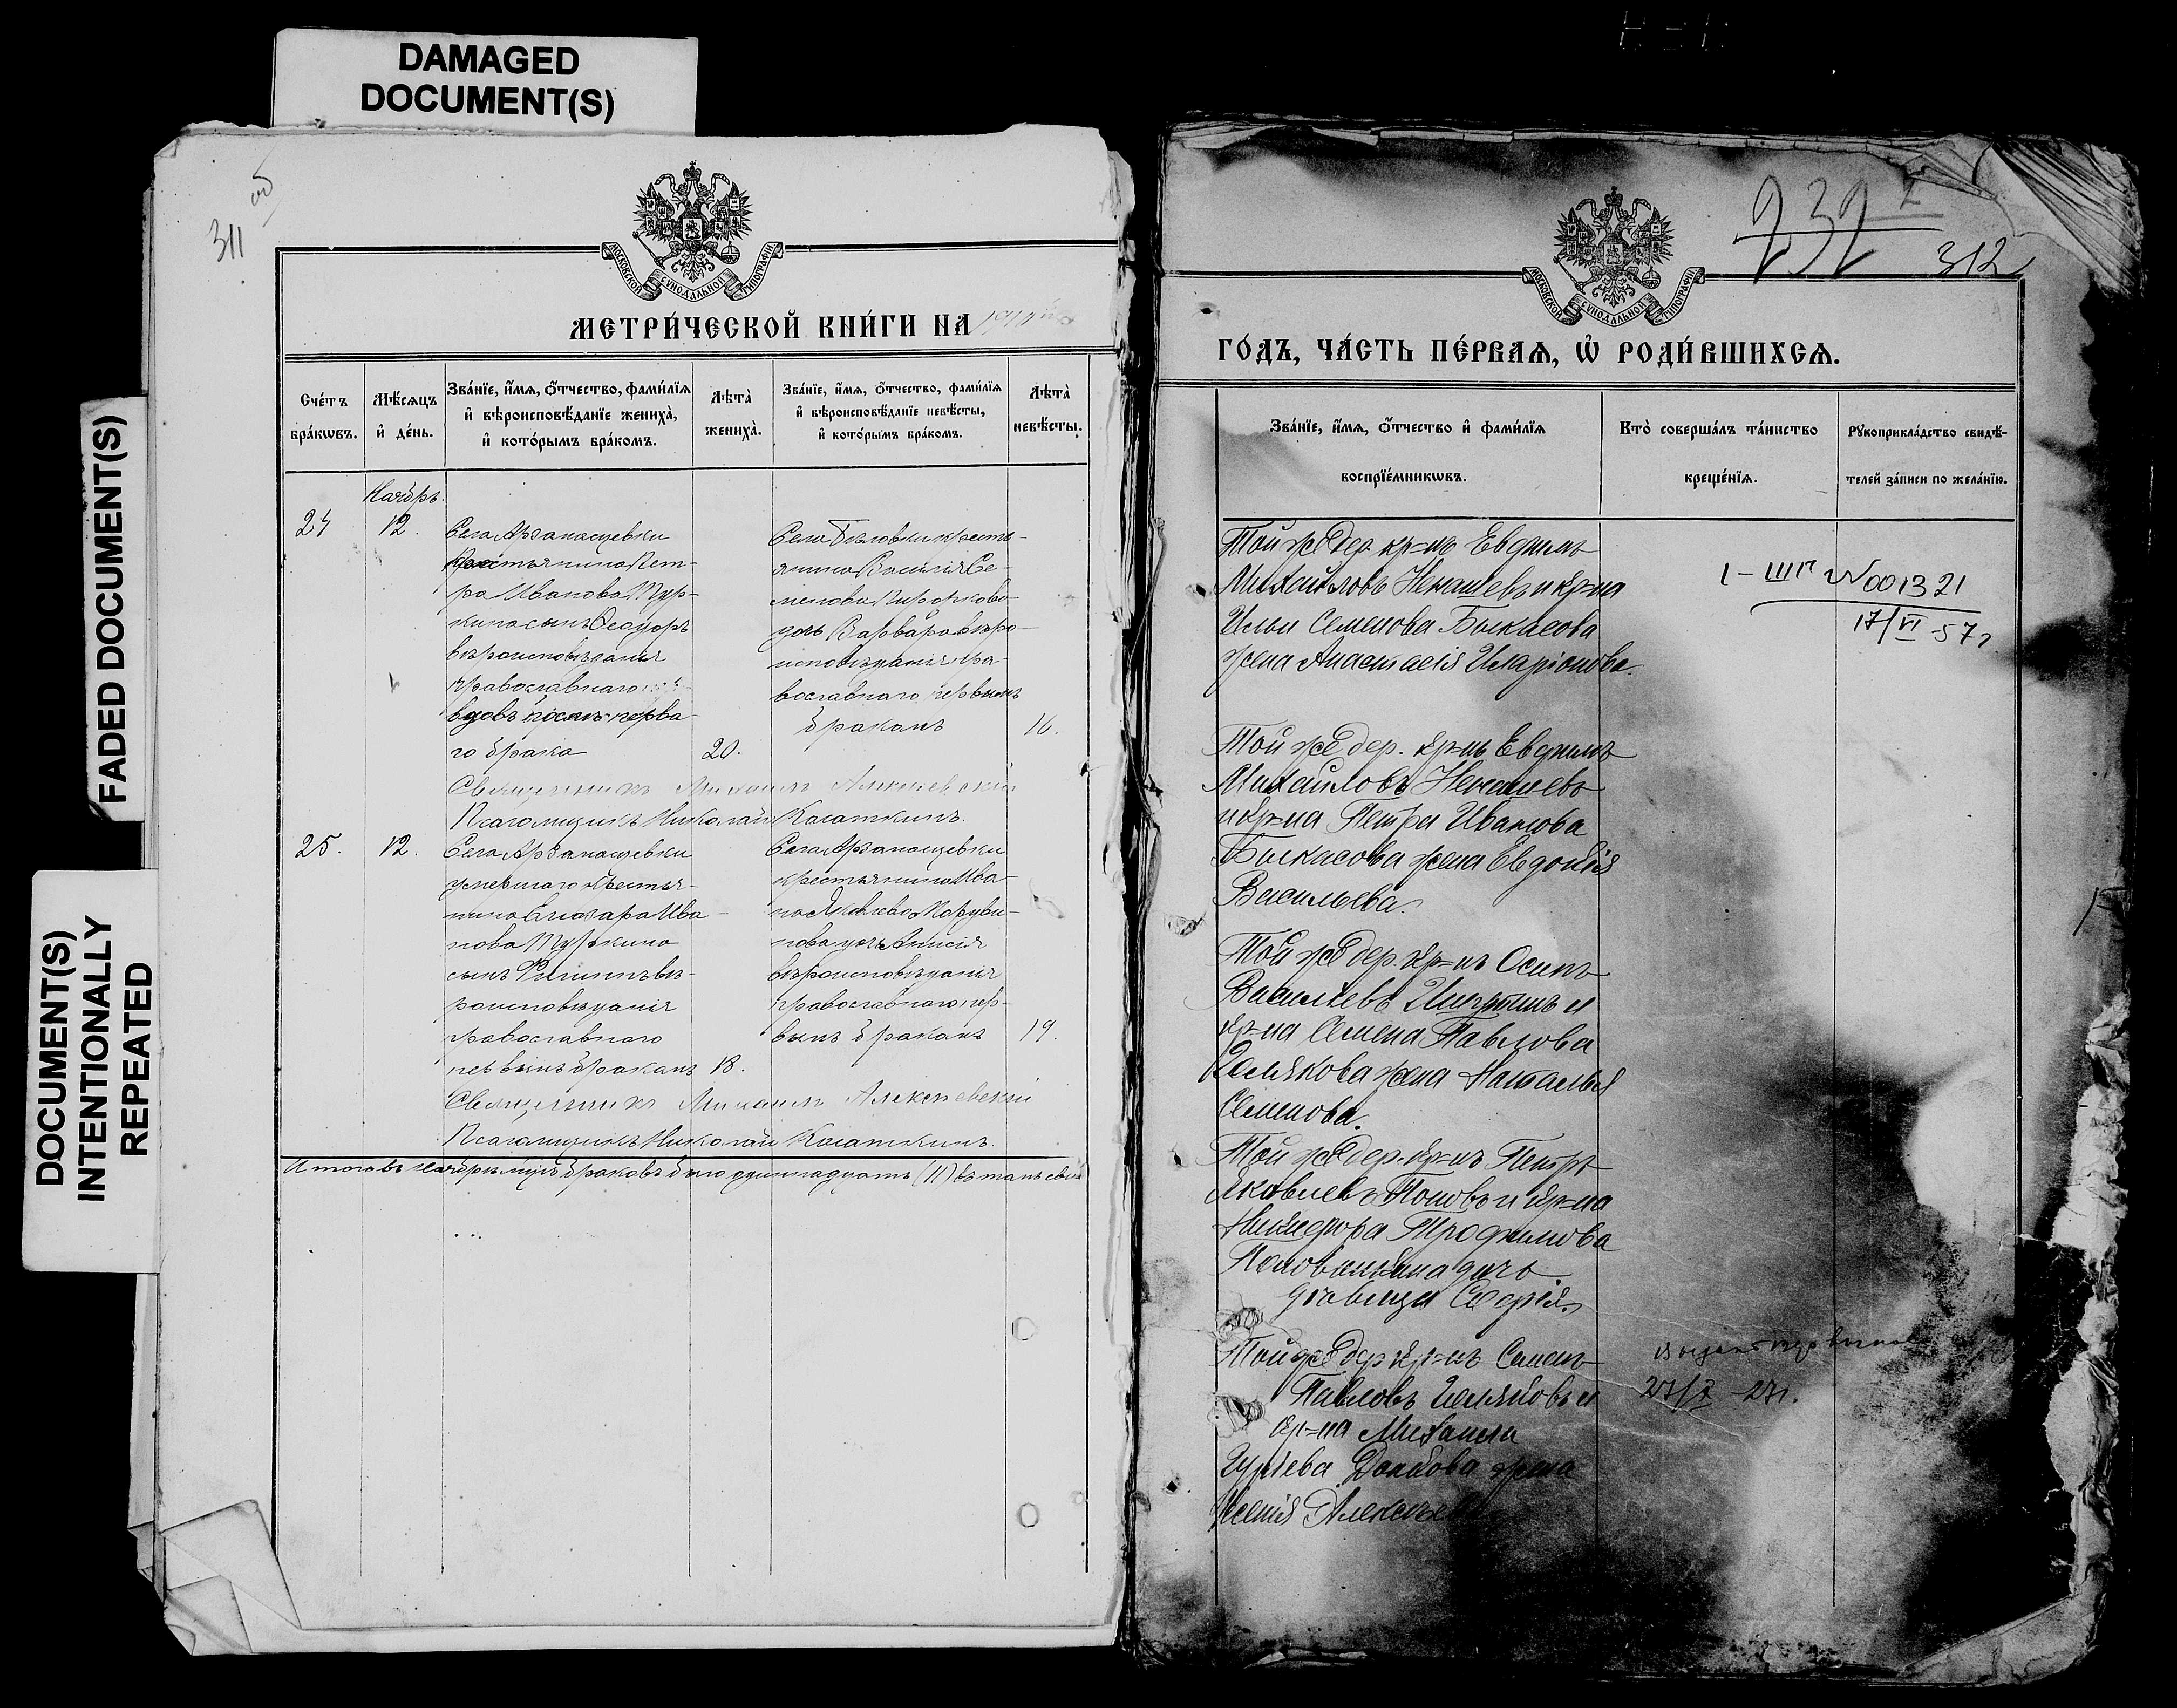 DAMAGED
DOCUMENT(S)
FADED DOCUMENT(S)
DOCUMENT(S)
INTENTIONALLY
REPEATED
311 об
МОСКОВСКОЙ СѴНОДАЛЬНОЙ ТИПОГРАФІИ
МЕТРИ́ЧЕСКОЙ КНИ́ГИ НА 1910
Сче́тъ бра́кωвъ.
Мѣ́сяцъ и҆ де́нь.
Зва́нїе, и҆́мѧ, ѻ҆́тчество, фами́лїѧ
и҆ вѣроисповѣ́данїе жениха̀,
и҆ кото́рымъ бра́комъ.
Лѣта̀ жениха̀.
Зва́нїе, и҆́мѧ, ѻ҆́тчество, фами́лїѧ
и҆ вѣроисповѣ́данїе невѣ́сты,
и҆ кото́рымъ бра́комъ.
Лѣта̀ невѣ́сты.
Ноябрь.
24 12.
Села Арзамасцевки
крестьянина Пет-
ра Иванова Тур-
кина сынъ Ѳеодоръ
вѣроисповѣданія
православнаго
вдовъ послѣ перва-
го брака 20.
Села Бѣловки кресть-
янина Василія Се-
менова
дочь Варвара вѣро-
исповѣданія пра-
вославнаго первымъ
бракомъ 16.
Священникъ Михаилъ Алексѣевскій
Псаломщикъ Николай Касаткинъ.
25. 12.
Села Арзамасцевки
умершаго крестья-
нина Елизара Ива-
нова Туркина
сынъ Филиппъ вѣ-
роисповѣданія
православнаго
первымъ бракомъ 18.
Села Арзамасцевки
крестьянина Ива-
на Яковлева
нова дочь Анисія
вѣроисповѣданія
православнаго пер-
вымъ бракомъ 19.
Священникъ Михаилъ Алексѣевскій
Псаломщикъ Николай Касаткинъ.
Итого въ Ноябрѣ мцѣ браковъ было одиннадцать (11) въ томъ
232 2
312
МОСКОВСКОЙ СѴНОДАЛЬНОЙ ТИПОГРАФІИ
ГО́ДЪ, ЧА́СТЬ ПЕ́РВАѦ, Ѡ҆ РОДИ́ВШИХСѦ.
Зва́нїе, и҆́мѧ, ѻ҆́тчество и҆ фами́лїѧ
воспрїе́мникωвъ.
Кто̀ соверша́лъ та́инство
креще́нїѧ.
Рꙋкоприкла́дство свидѣ́-
телей за́писи по жела́нїю.
Той же дер. кр=нъ Евдокимъ
Михайловъ Ненашевъ и кр=на
Ильи Семенова Быкасова
жена Анастасія Иларіонова.
Той же дер. кр=нъ Евдокимъ
Михайловъ Ненашевъ
и кр=на Петра Иванова
Быкасова жена Евдокія
Васильева.
Той же дер. кр=нъ Осипъ
Васильевъ и
кр=на Семена Павлова
жена Наталья
Семенова.
Той же дер. кр=нъ Петръ
Яковлевъ Поповъ и кр=на
Никифора Трофимова
дочь
дѣвица Софія.
Той же дер кр=нъ Семенъ
Павловъ и
кр=на Михаила
Гурьева жена
Ксенія Алексѣева
1-ШГ №001321
17/VI-57г
27/X 27г.